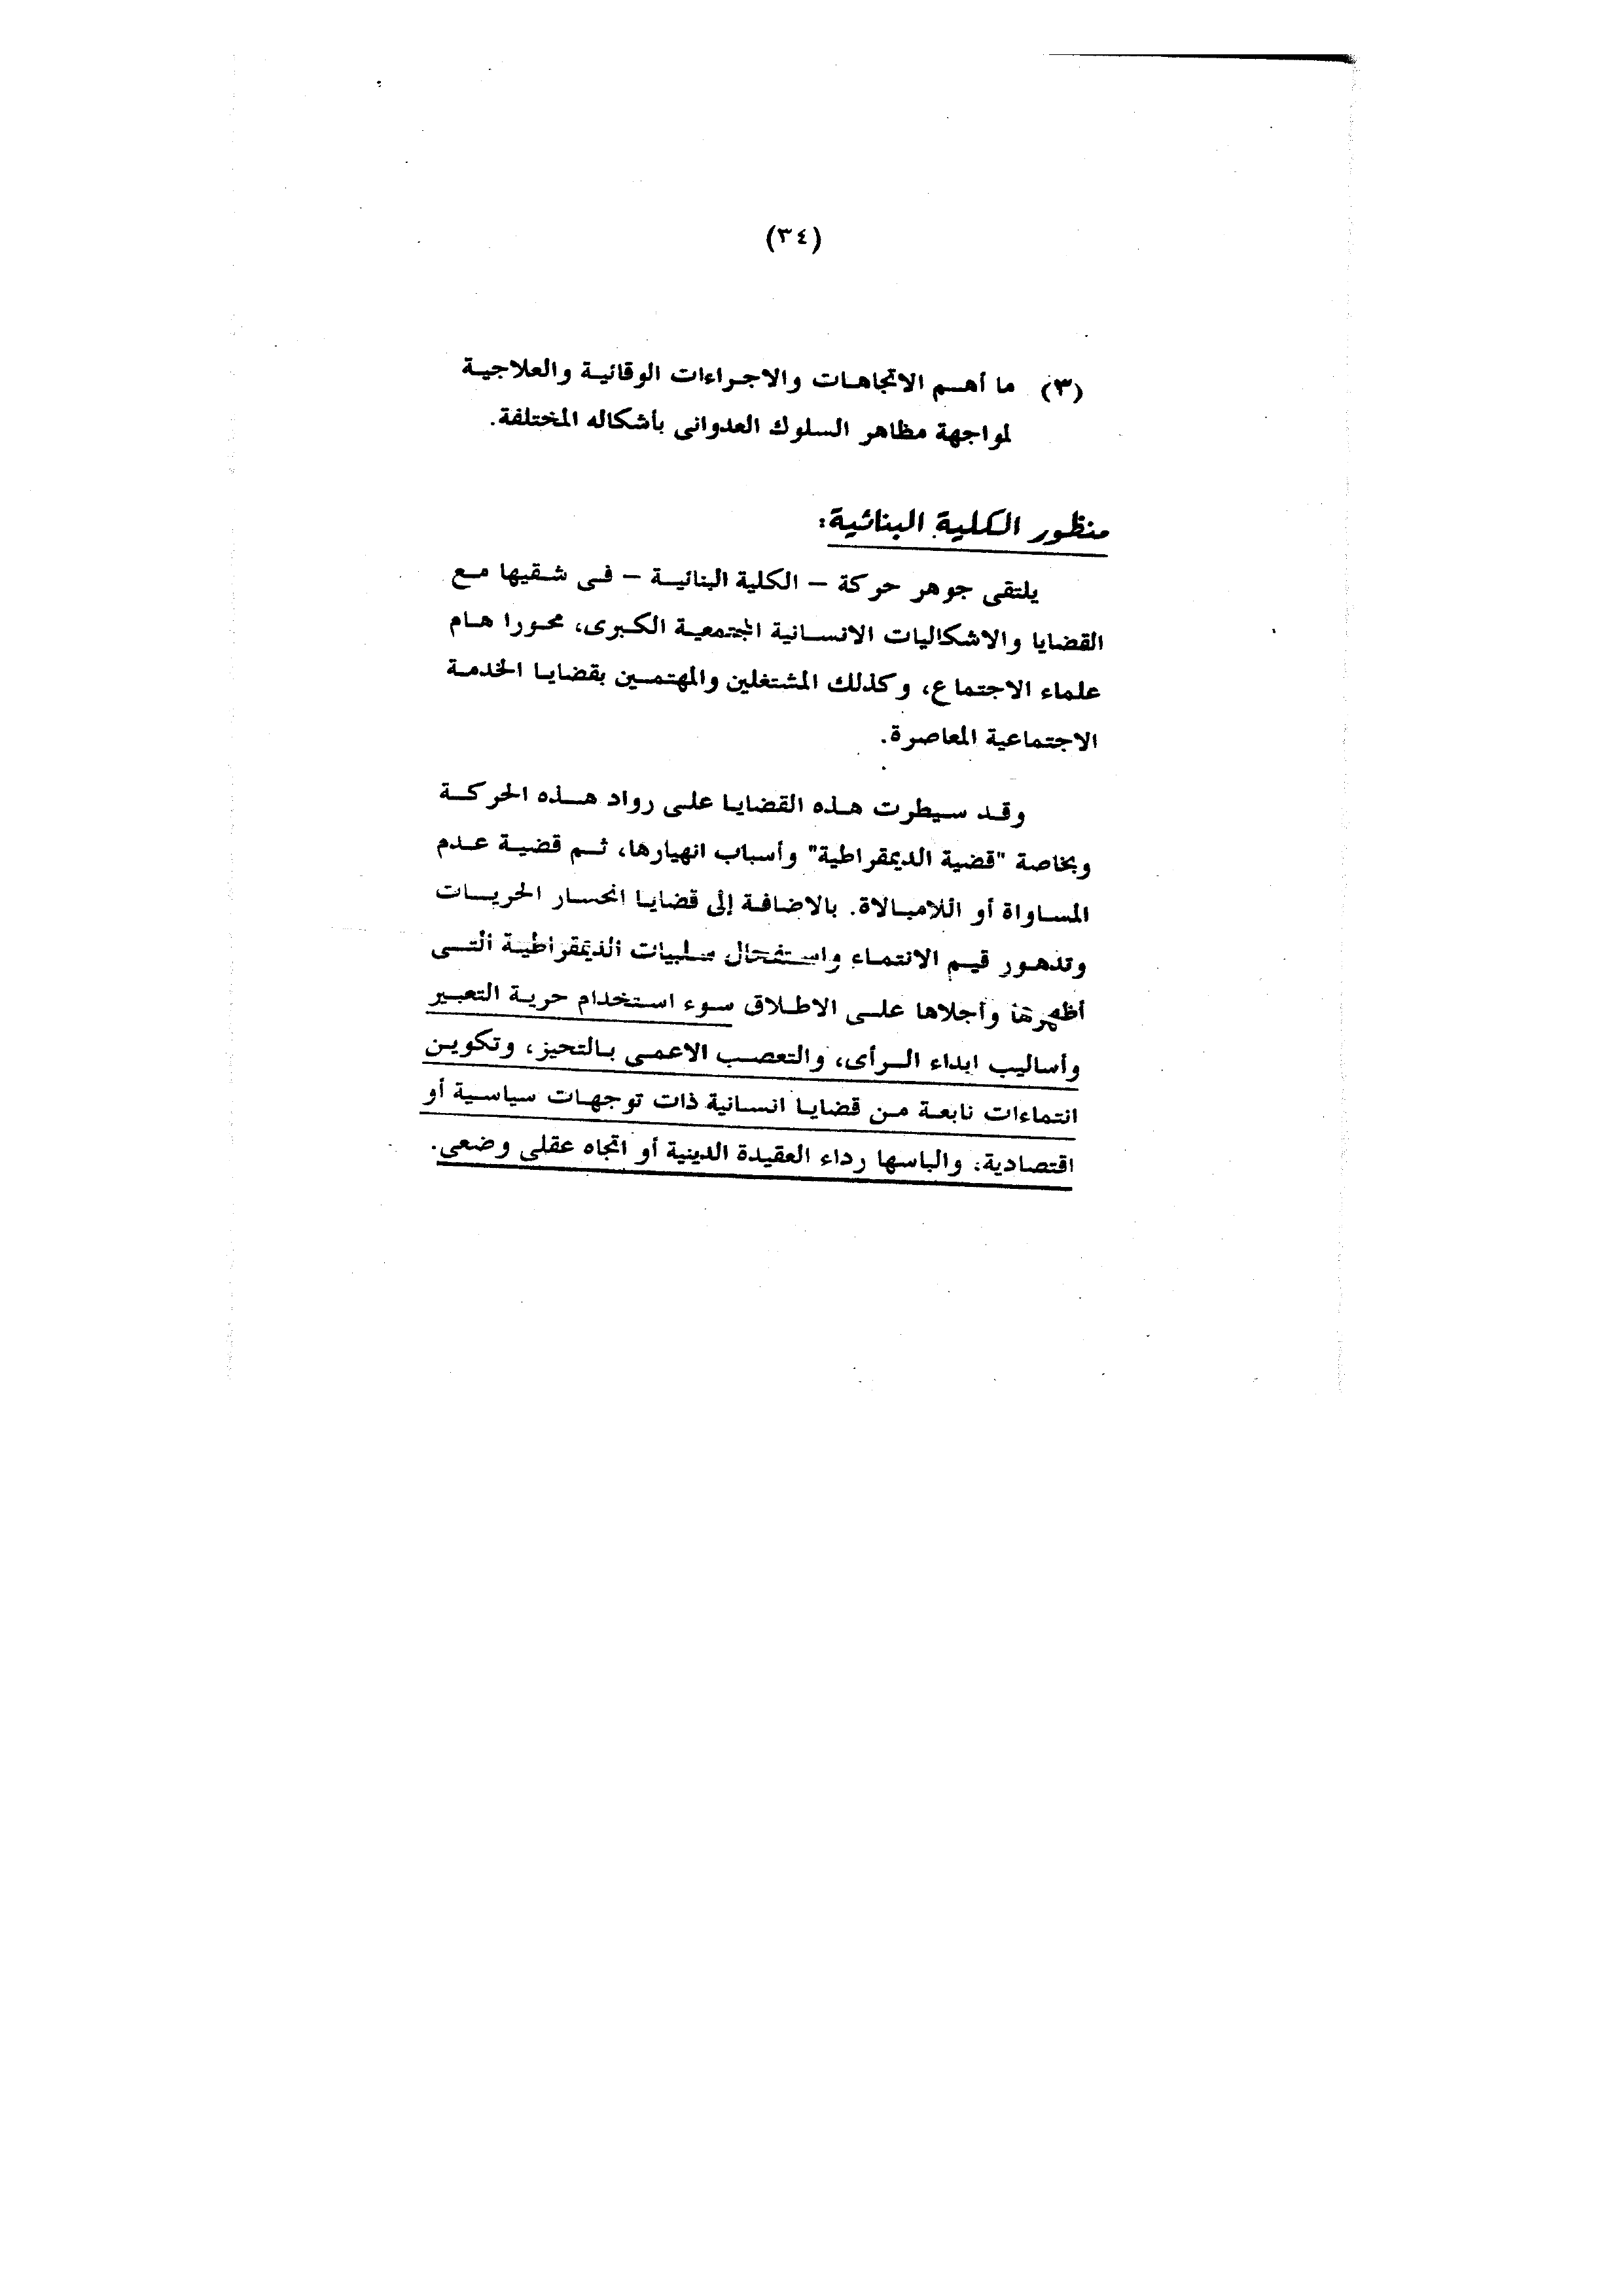 (٣٤)
(٣) ما أهم الاتجاهات والاجراءات الوقائية والعلاجية
لمواجهة مظاهر السلوك العدوانى بأشكاله المختلفة.
منظور الكلية البنائية:
يلتقى جوهر حركة – الكلية البنائية – فى شقيها مع
القضايا والاشكاليات الانسانية المجتمعية الكبرى، محورا هام
علماء الاجتماع، وكذلك المشتغلين والمهتمين بقضايا الخدمة
الاجتماعية المعاصرة.
وقد سيطرت هذه القضايا على رواد هذه الحركة
وبخاصة "قضية الديمقراطية" وأسباب انهيارها، ثم قضية عدم
المساواة أو اللامبالاة. بالاضافة إلى قضايا انحسار الحريات
وتدهور قيم الانتماء واستفحال سلبيات الديمقراطية التى
أظهرتها وأجلاها على الاطلاق سوء استخدام حرية التعبير
وأساليب ابداء الرأى، والتعصب الاعمى بالتحيز، وتكوين
انتماءات نابعة من قضايا انسانية ذات توجهات سياسية أو
اقتصادية، والباسها رداء العقيدة الدينية أو اتجاه عقلى وضعى.